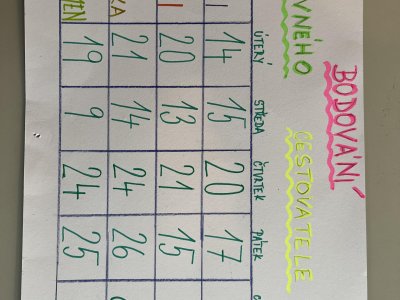 BODOVÁNÍ
VNÉHO CESTOVATELE
ÚTERÝ STŘEDA ČTVRTEK PÁTEK
14 15 20 17
20 13 21 15
KA 21 14 24 26
MEN 19 9 24 25